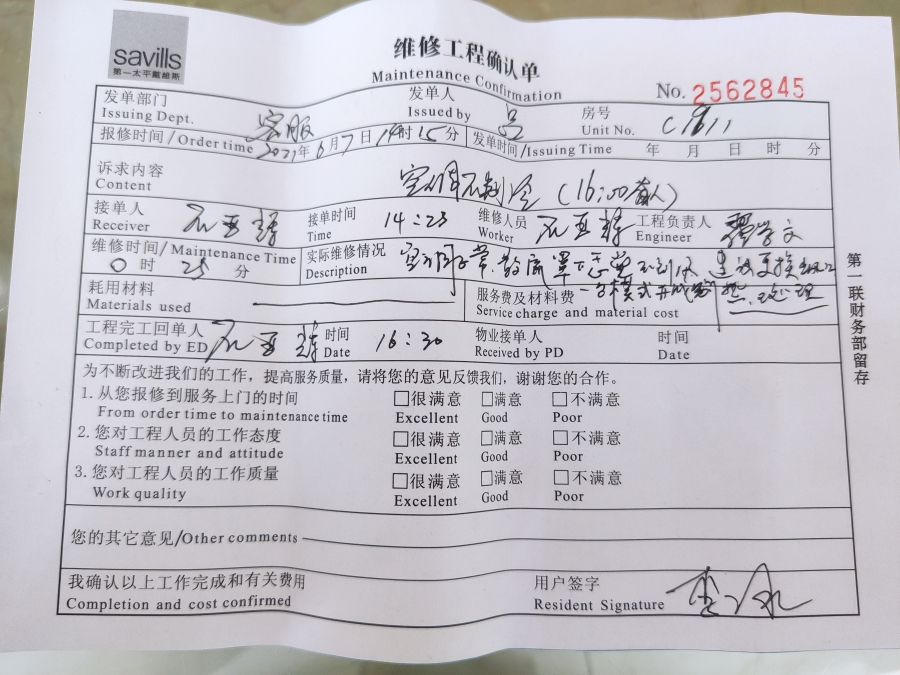 savills
第一太平戴维斯
维修工程确认单
Maintenance Confirmation
No. 2562845
发单部门 客服 发单人 吕 房号
Issuing Dept. Issued by Unit No.
报修时间/Order time 2021年6月7日14时15分 发单时间/Issuing Time 年 月 日 时 分
诉求内容 空调不制冷 (16:00有人)
Content
接单人 石亚辉 接单时间 14:23 维修人员 石亚辉 工程负责人
Receiver Time Worker Engineer
维修时间/Maintenance Time 实际维修情况
0时25分 Description
耗用材料 服务费及材料费
Materials used Service charge and material cost
工程完工回单人 石亚辉 时间 16:30 物业接单人 时间
Completed by ED Date Received by PD Date
为不断改进我们的工作，提高服务质量，请将您的意见反馈我们，谢谢您的合作。
1. 从您报修到服务上门的时间 □很满意 □满意 □不满意
From order time to maintenance time Excellent Good Poor
2. 您对工程人员的工作态度 □很满意 □满意 □不满意
Staff manner and attitude Excellent Good Poor
3. 您对工程人员的工作质量 □很满意 □满意 □不满意
Work quality Excellent Good Poor
您的其它意见/Other comments
我确认以上工作完成和有关费用 用户签字
Completion and cost confirmed Resident Signature
第一联财务部留存